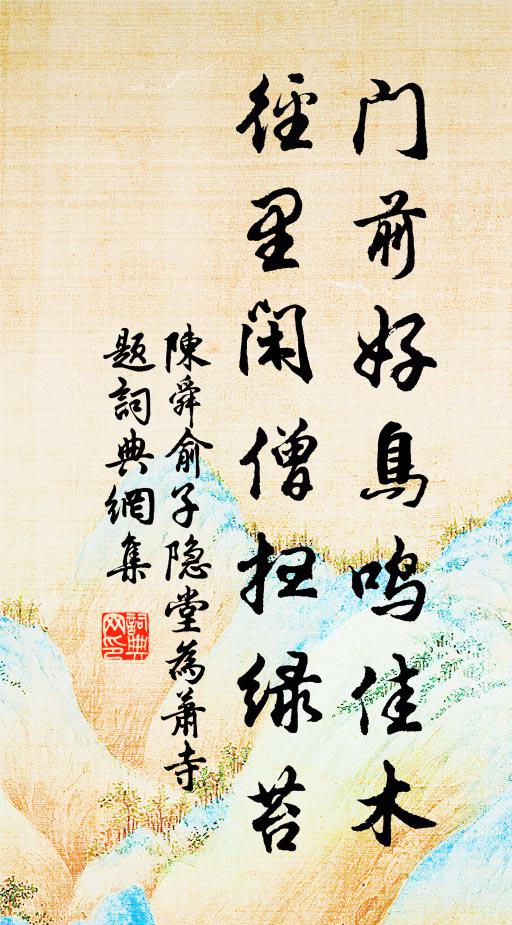 门前好鳥鸣佳木
徑里闲僧扫緑苔
陳舜俞子隐堂為蕭寺
题詞典網集
詞典网印